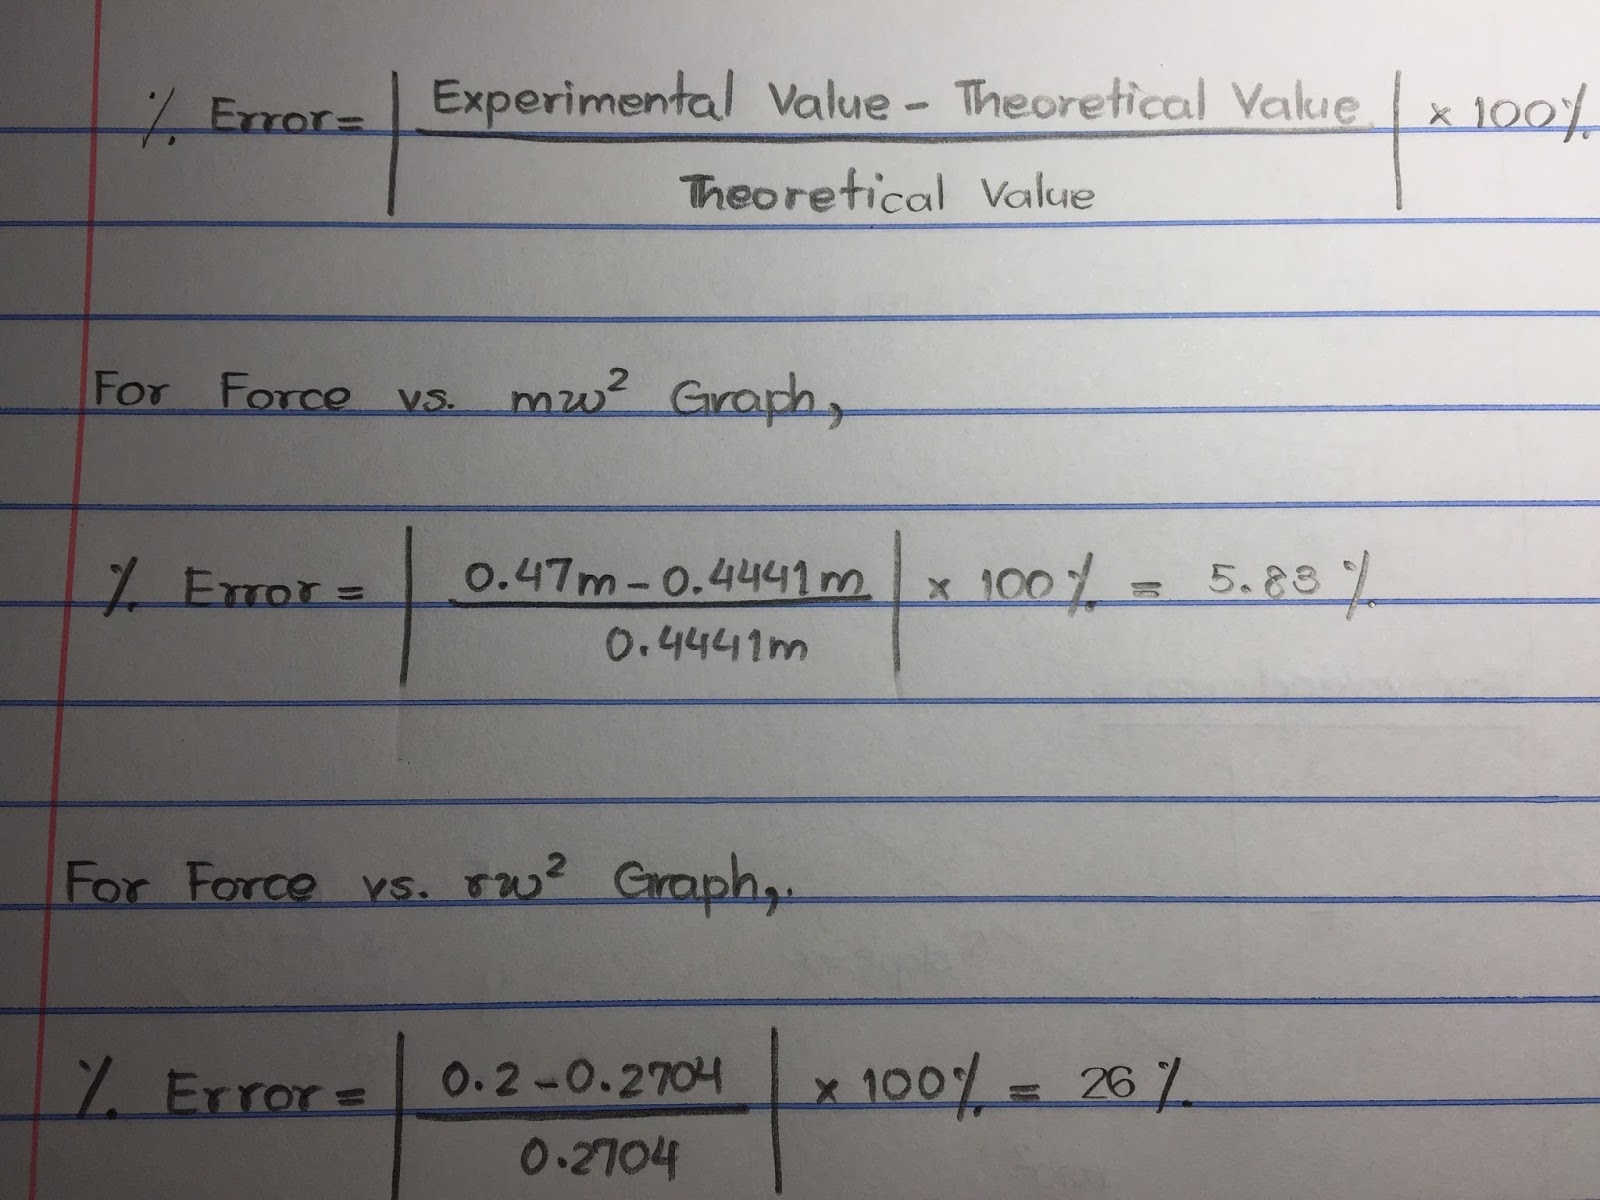 % Error = | Experimental Value - Theoretical Value / Theoretical Value | x 100%
For Force vs. mw² Graph,
% Error = | 0.47m - 0.4441m / 0.4441m | x 100% = 5.83%
For Force vs. rw² Graph,.
% Error = | 0.2 - 0.2704 / 0.2704 | x 100% = 26%